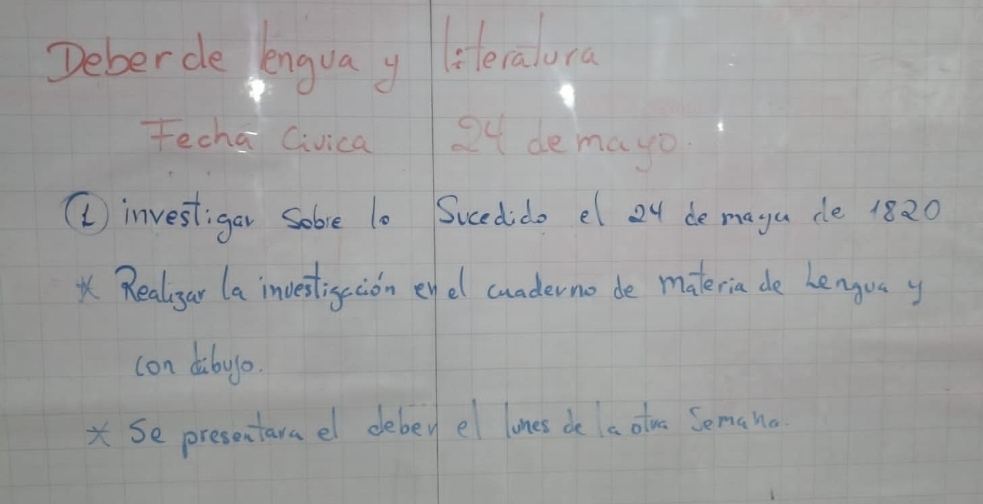 Deber de lengua y literatura
Fecha Civica 24 de mayo.
① investigar Sobre lo Sucedido el 24 de mayo de 1820
* Realizar la investigación en el cuaderno de materia de Lengua y
con dibujo.
* Se presentara el deber el lunes de la otra Semana.